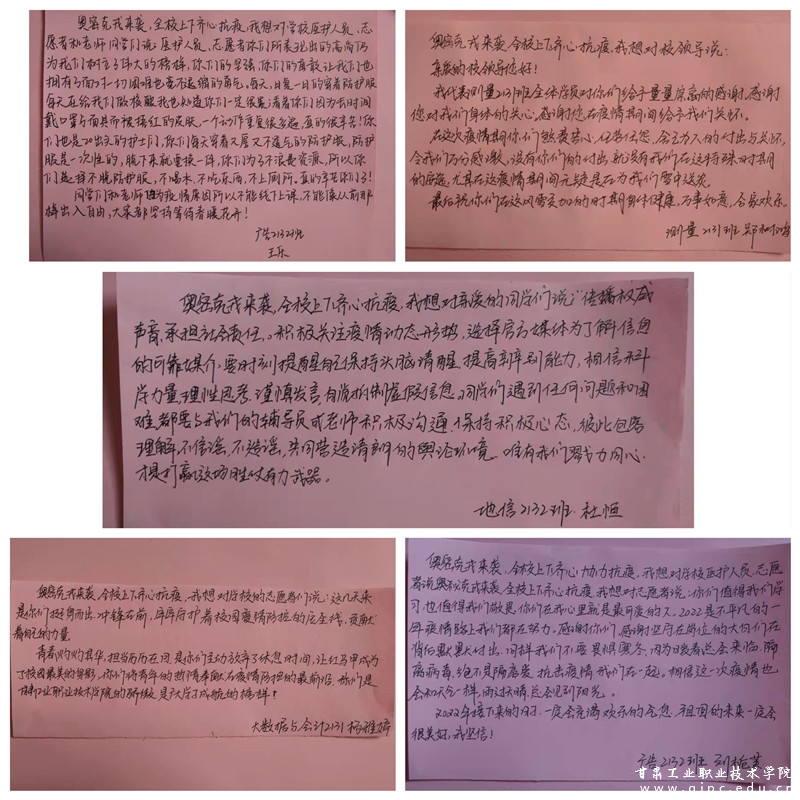 奥密克戎来袭，全校上下齐心抗疫，我想对学校医护人员、志
愿者和老师同学们说：医护人员、志愿者你们所表现出的高尚
为我们树立了伟大的榜样，你们的坚强，你们的勇敢让我们也
拥有了面对一切困难也毫不退缩的勇气。每天，日复一日的穿着防护服
每天五轮我们做核酸我也知道你们一定很累
戴口罩与面具而被摸红的皮肤，一个动作重复很多遍，真的很辛苦！你
们也是20出头的护士们，你们每天穿着又厚又不透气的防护服，防护
服是一次性的，脱下来就要换一件，你们为了不浪费资源，所以你
们选择不脱防护服，不喝水，不吃东西，不上厕所，真的辛苦你们了！
同学们和老师因为疫情原因所以不能线下上课，不能像从前那
样出入自由，大家都坚持等待春暖花开！
广告2132班
王乐
奥密克戎来袭，全校上下齐心抗疫，我想对校领导说：
亲爱的校领导您好！
我代表测量2131班全体学员对你们给予最崇高的感谢，感谢
您对我们身体的关心，感谢您在疫情期间给予我们关怀。
在这次疫情期你们熬费苦心，任劳任怨，全力为人的付出与关怀，
令我们万分感激，没有你们的付出就没有我们在这特殊时期
的安逸，尤其在这疫情期间无疑是在为我们雪中送炭。
最后祝你们在这风雪交加的时期身体健康，万事如意，合家欢乐。
测量2131班
奥密克戎来袭，全校上下齐心抗疫，我想对亲爱的同学们说：“传播权威
声音，承担社会责任，积极关注疫情动态形势，选择官方媒体为了解信息
的可靠媒介，要时刻提醒自己保持头脑清醒，提高辨别能力，相信科
学力量，理性思考，谨慎发言，自觉抵制虚假信息，同学们遇到任何问题和困
难，都要与我们的辅导员或老师积极沟通，保持积极心态，彼此包容
理解，不信谣，不造谣，共同营造清朗的舆论环境。唯有我们戮力同心，
才是打赢这场胜仗有力武器。
地信2132班 杜恒
奥密克戎来袭，全校上下齐心抗疫，我想对学校的志愿者们说：这几天来
是你们挺身而出，冲锋在前，库库守护着校园疫情防控的安全线，贡献
着自己的力量
青春灼灼其华，担当历历在目，是你们主动放弃了休息时间，让红马甲成为
了校园最美的身影，你们将青年的热情奉献在疫情防控的最前沿，你们是
甘肃工业职业技术学院的骄傲，是大学生成航的榜样！
大数据与会计2131 杨雅婷
奥密克戎来袭，全校上下齐心协力抗疫，我想对学校医护人员、志愿
者说奥秘克戎来袭，全校上下齐心抗疫，我想对志愿者说：你们值得我们学
习，也值得我们敬畏，你们在我心里就是最可爱的人。2022是不平凡的一
年疫情路上我们都在努力。感谢你们，感谢坚守在岗位的大伯们在
背后默默付出，同样我们不要畏惧寒冬，因为暖春总会来临，隔
离病毒，绝不是隔离爱，抗击疫情我们在一起。相信这一次疫情也
会和天气一样，雨过天晴总会见到阳光。
2022年接下来的日子，一定会充满欢乐的气息，祖国的未来一定会
很美好，我坚信！
广告2132班
甘肃工业职业技术学院
www.gipc.edu.cn